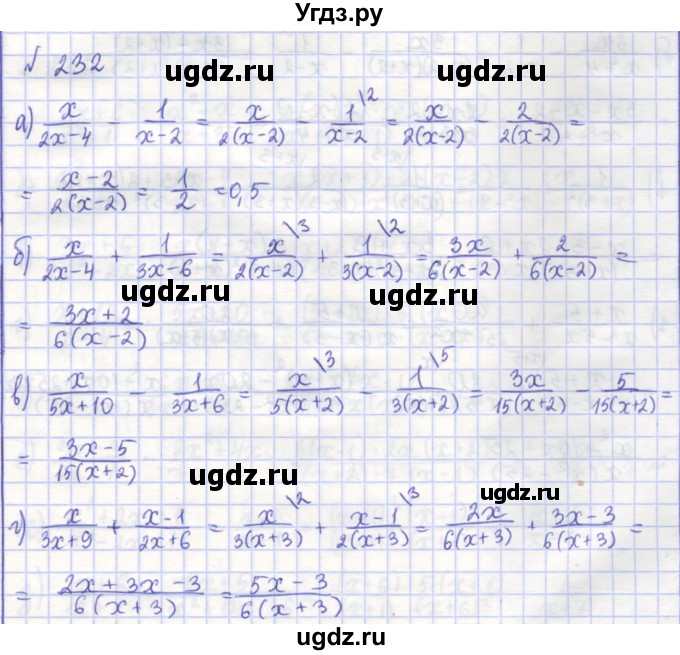 Угдз.ру
№ 232
ugdz.ru ugdz.ru
а) x/(2x-4) - 1/(x-2) = x/(2(x-2)) - 1\2/(x-2) = x/(2(x-2)) - 2/(2(x-2)) =
= (x-2)/(2(x-2)) = 1/2 = 0,5
ugdz.ru
б) x/(2x-4) + 1/(3x-6) = x\3/(2(x-2)) + 1\2/(3(x-2)) = 3x/(6(x-2)) + 2/(6(x-2)) =
ugdz.ru ugdz.ru
= (3x+2)/(6(x-2))
ugdz.ru
в) x/(5x+10) - 1/(3x+6) = x\3/(5(x+2)) - 1\5/(3(x+2)) = 3x/(15(x+2)) - 5/(15(x+2)) =
= (3x-5)/(15(x+2))
ugdz.ru ugdz.ru
г) x/(3x+9) + (x-1)/(2x+6) = x\2/(3(x+3)) + (x-1)\3/(2(x+3)) = 2x/(6(x+3)) + (3x-3)/(6(x+3)) =
= (2x+3x-3)/(6(x+3)) = (5x-3)/(6(x+3))
ugdz.ru
ugdz.ru